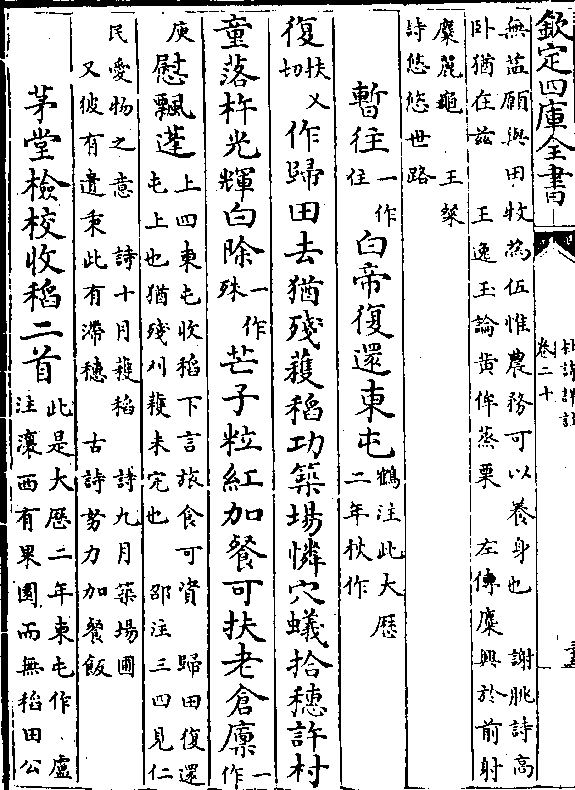 欽定四庫全書
卷二十
無藍願與田收為伍惟農務可以養身也　謝朓詩高
卧猶在兹　王逸玉論黄侔蒸栗　左傳麋興於前射
麋麗龜　王粲
詩悠悠世路
暫往一作住白帝復還東屯鶴注此大歴二年秋作
復扶又切作歸田去猶殘穫稻功築場憐穴蟻拾穗許村
童落杵光輝白除一作殊芒子粒紅加餐可扶老倉廪一作
庾慰飄蓬上四東屯收稻下言旅食可資　歸田復還
屯上也猶殘刈穫未完也　邵注三四見仁
民愛物之意　詩十月穫稻　詩九月築場圃
又彼有遺秉此有滯穗　古詩努力加餐飯
茅堂檢校收稻二首此是大歴二年東屯作　盧
注瀼西有果園而無稻田公